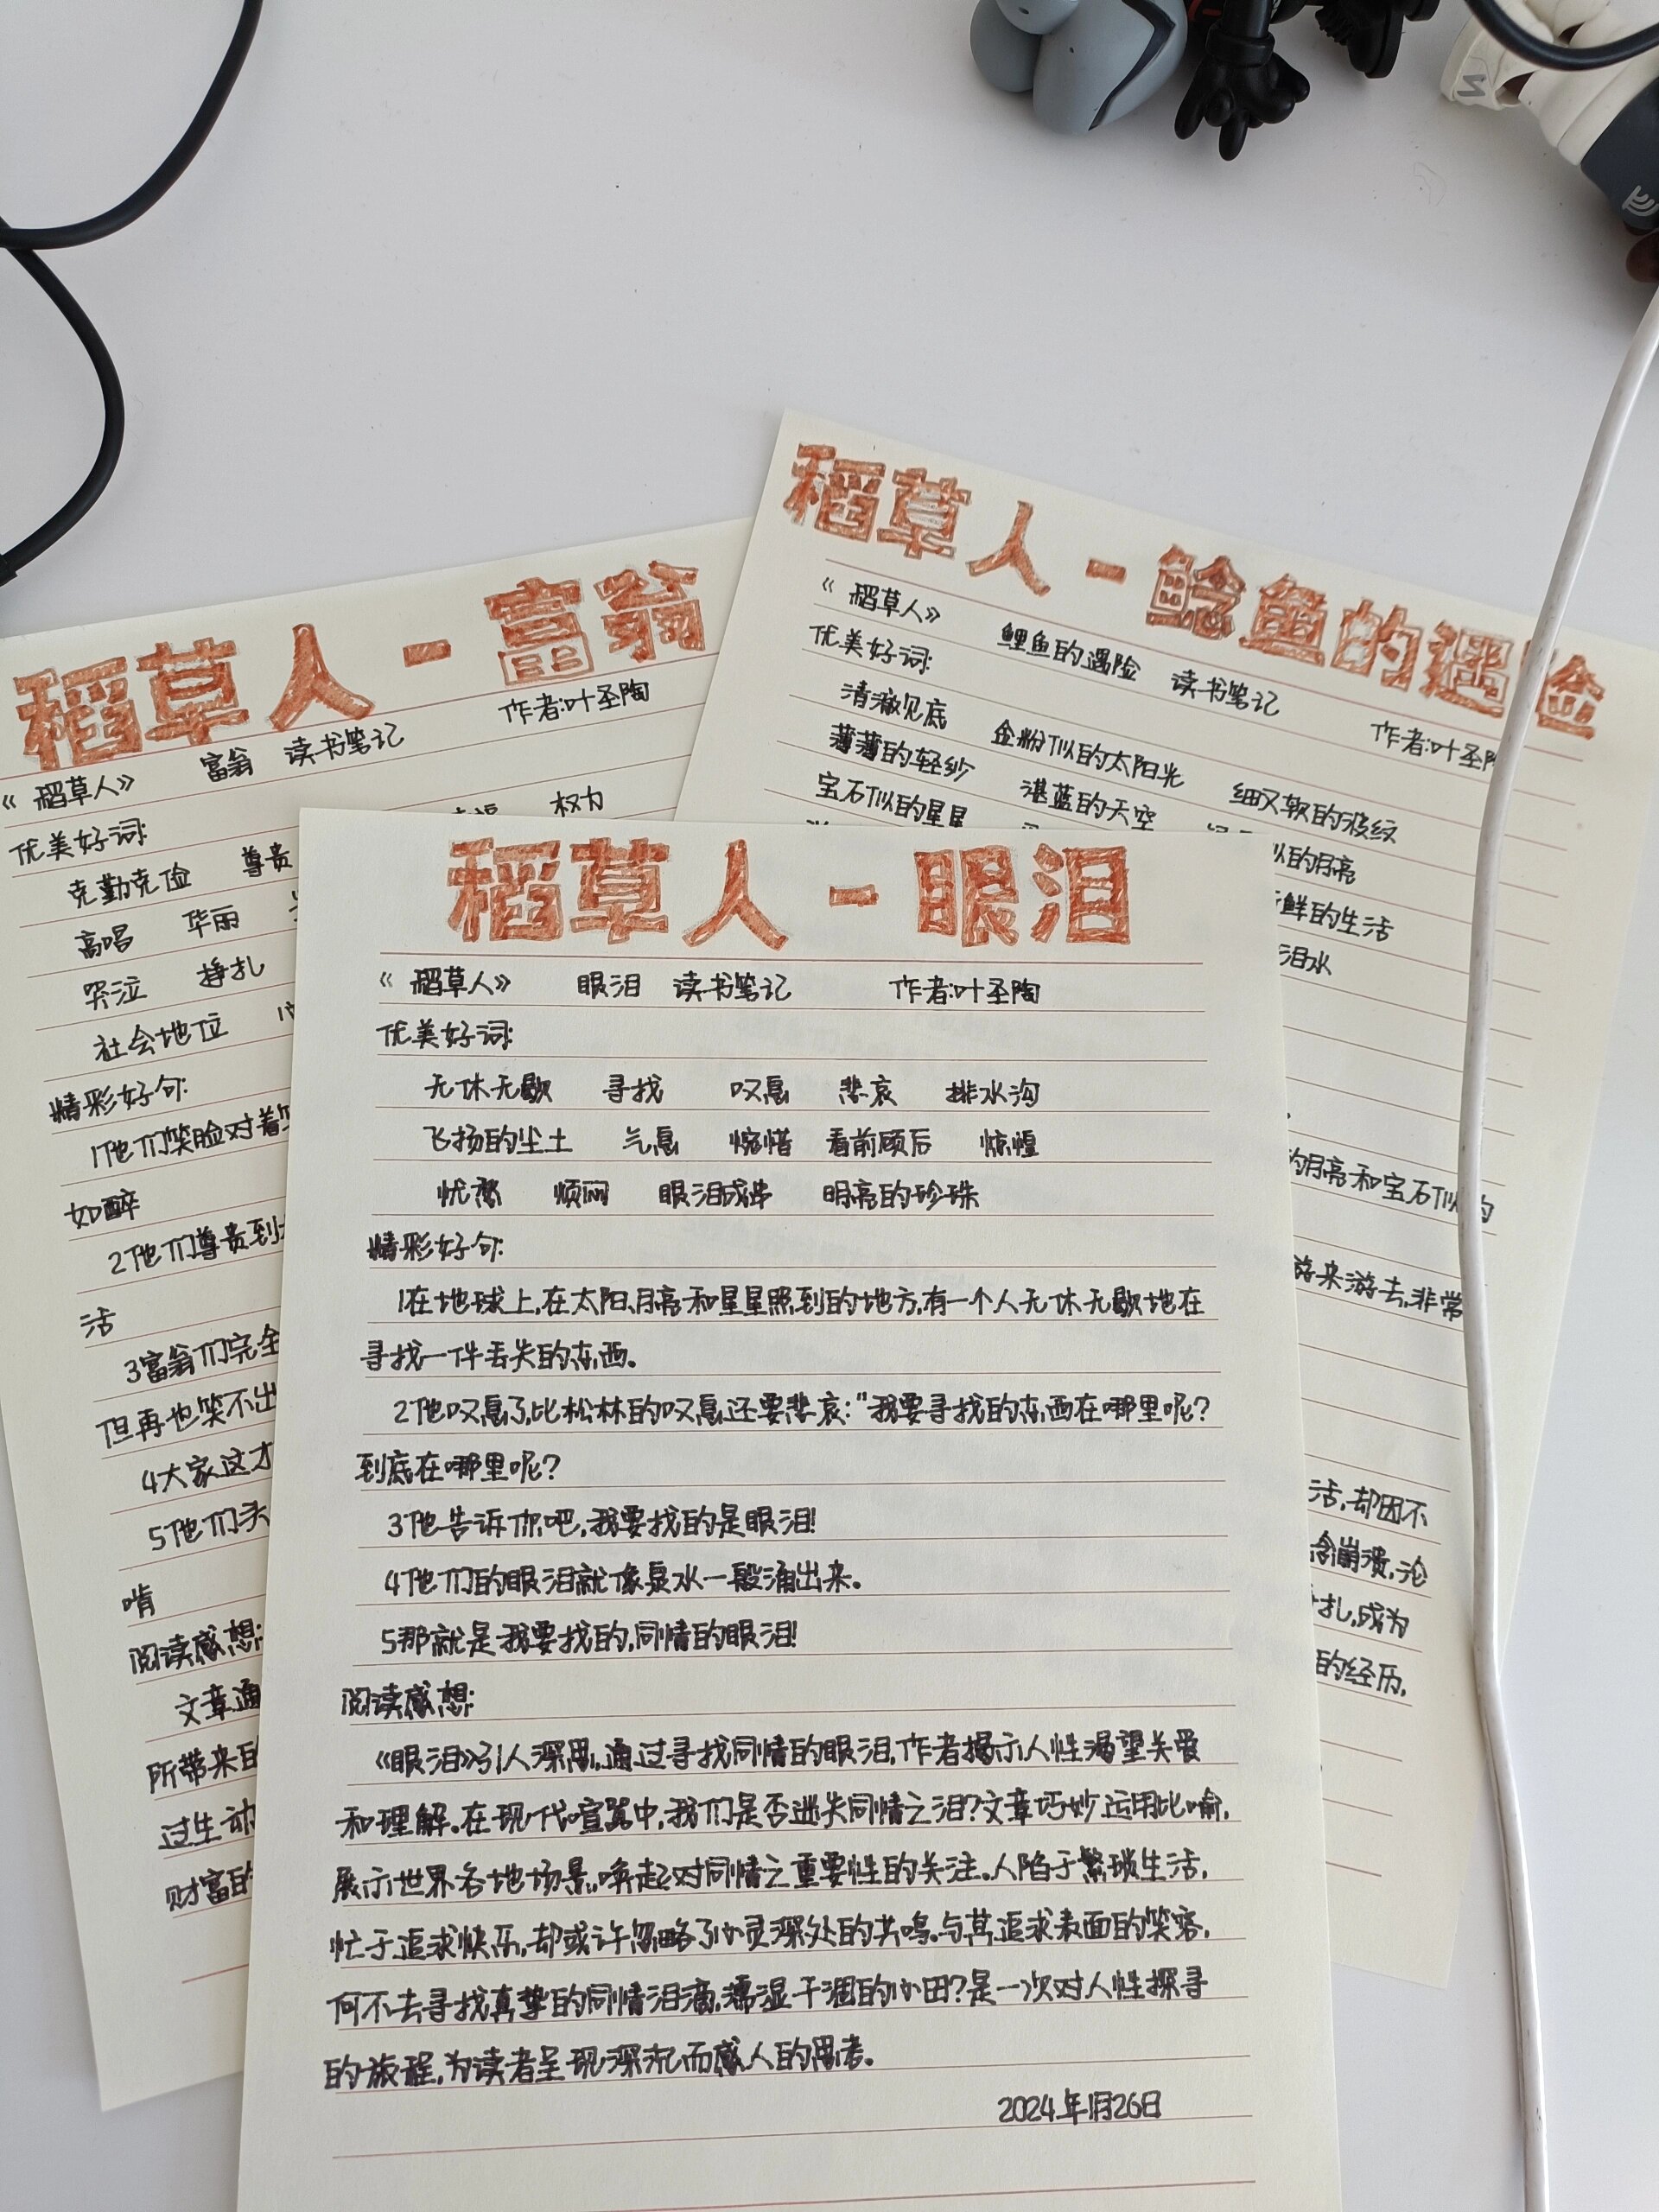 稻草人-富翁
《稻草人》 富翁 读书笔记 作者:叶圣陶
优美好词:
克勤克俭 尊贵 权力
高唱 华丽
哭泣 挣扎
社会地位
精彩好句:
1他们笑脸对着
如醉
2他们尊贵到
活
3富翁们完全
但再也笑不出
4大家这才
5他们头
啃
阅读感想:
文章通
所带来的
过生动
财富的
稻草人-鲶鱼的遇险
《稻草人》 鲤鱼的遇险 读书笔记 作者:叶圣陶
优美好词:
清澈见底 金粉似的太阳光 细又软的波纹
薄薄的轻纱 湛蓝的天空 似的月亮
宝石似的星星 鲜的生活
泪水
的月亮和宝石似的
游来游去,非常
活,却因不
念崩溃,沦
扎,成为
的经历,
稻草人-眼泪
《稻草人》 眼泪 读书笔记 作者:叶圣陶
优美好词:
无休无歇 寻找 叹息 悲哀 排水沟
飞扬的尘土 气息 惋惜 看前顾后 惊惶
忧愁 烦闷 眼泪成串 明亮的珍珠
精彩好句:
1在地球上,在太阳、月亮和星星照到的地方,有一个人无休无歇地在
寻找一件丢失的东西。
2他叹息了,比松林的叹息还要悲哀:"我要寻找的东西在哪里呢?
到底在哪里呢?
3他告诉你吧,我要找的是眼泪!
4他们的眼泪就像泉水一般涌出来。
5那就是我要找的,同情的眼泪!
阅读感想:
《眼泪》引人深思,通过寻找同情的眼泪,作者揭示人性渴望关爱
和理解。在现代喧嚣中,我们是否迷失同情之泪?文章巧妙运用比喻,
展示世界各地场景,唤起对同情之重要性的关注。人陷于繁琐生活,
忙于追求快乐,却或许忽略了心灵深处的共鸣。与其追求表面的笑容,
何不去寻找真挚的同情泪滴,濡湿干涸的心田?是一次对人性探寻
的旅程,为读者呈现深沉而感人的思考。
2024年1月26日